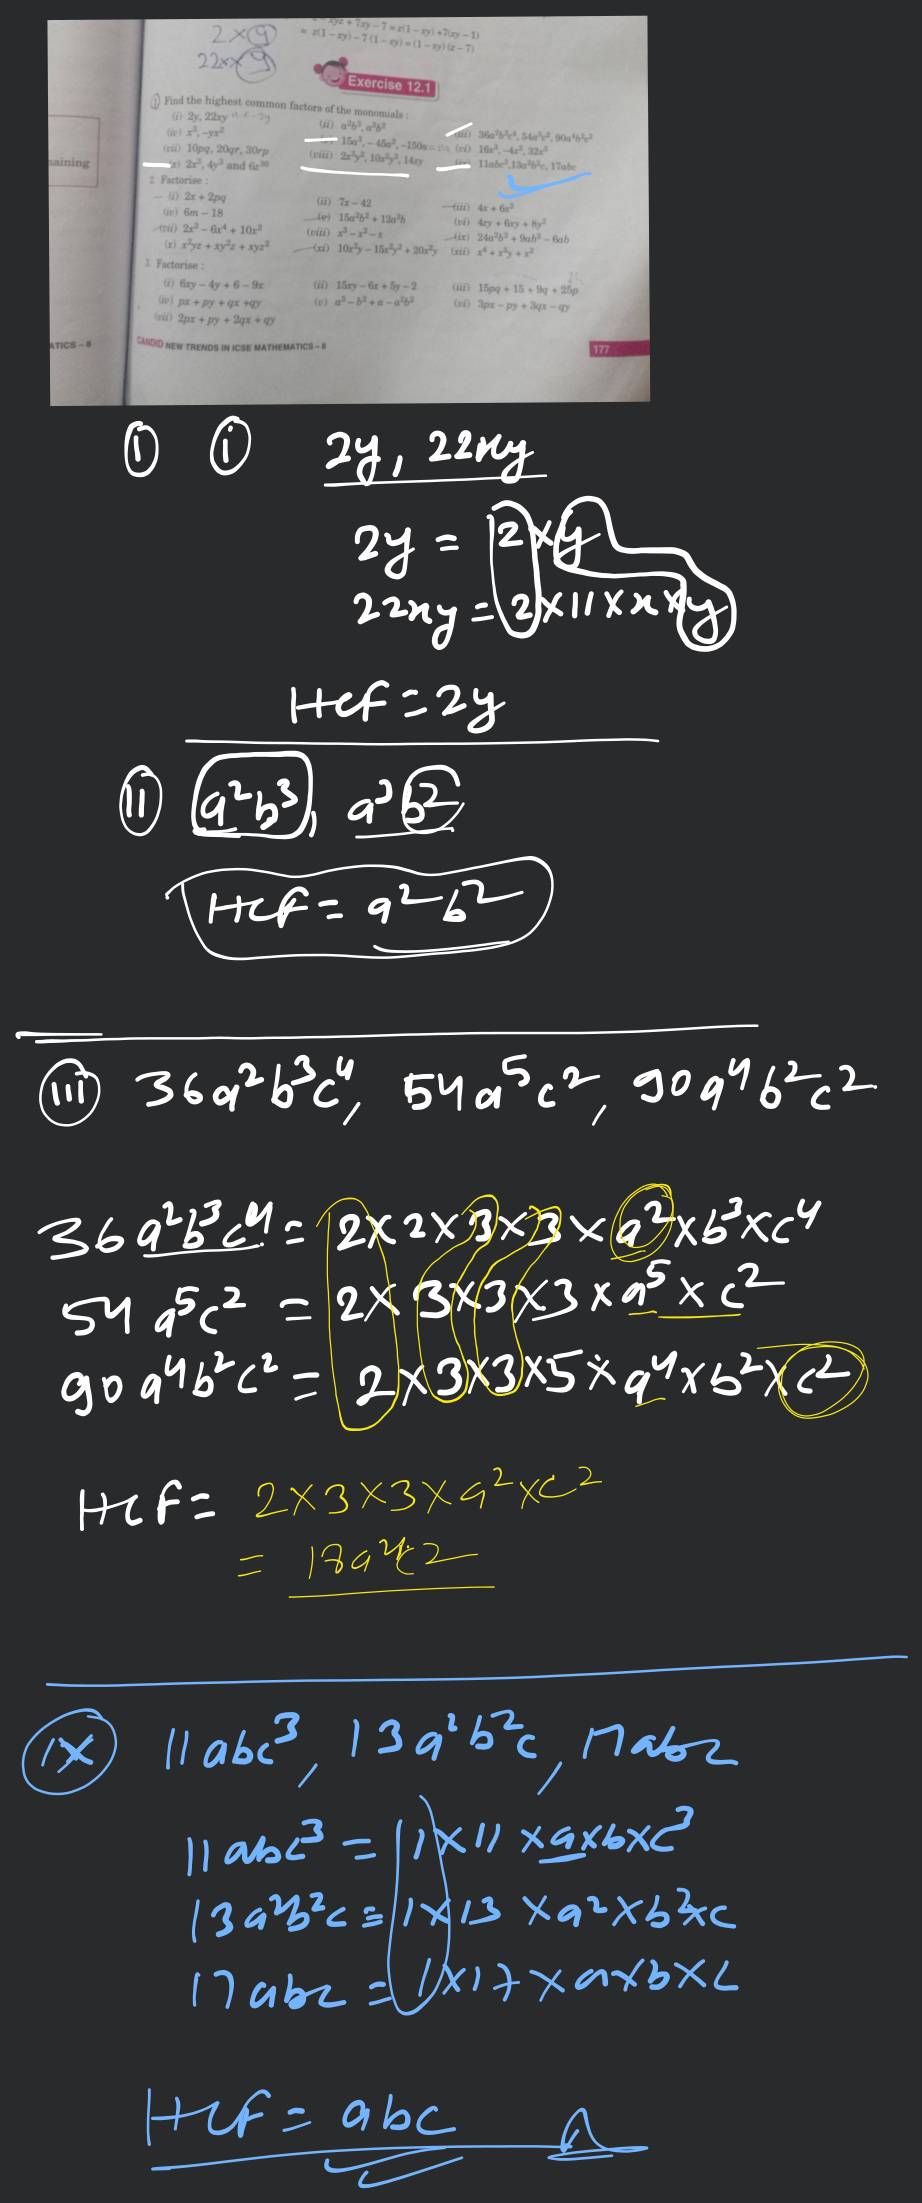 = z(1 – xy) – 7 (1 – xy) = (1 – xy) (z – 7)
2 × y
Exercise 12.1
1 Find the highest common factors of the monomials :
(i) 2y, 22xy (ii) a²b³, a³b² (iii) 36a²b³c⁴, 54a⁵c², 90a⁴b²c²
(vii) 10pq, 20qr, 30rp (viii) 2x²y², 10x²y³, 14xy 11abc³, 13a²b²c, 17abc
aining
2. Factorise :
(i) 2x + 2pq (ii) 7x – 42 (iii) 4x + 6x²
(iv) 6m – 18 (v) 15a²b² + 12a³b (vi) 4zy + 6xy + 8y²
(vii) 2x³ – 6x⁴ + 10x² (viii) x³ – x² – x (ix) 24a²b² + 9ab³ – 6ab
(x) x²yz + xy²z + xyz² (xi) 10x³y – 15x²y² + 20x²y (xii) x⁴ + x³y + x²
3. Factorise :
(i) 6xy – 4y + 6 – 9x (ii) 15xy – 6x + 5y – 2 (iii) 15pq + 15 + 9q + 25p
(iv) px + py + qx + qy (v) a³ – b² + a – a²b² (vi) 3px – py + 3qx – qy
(vii) 2px + py + 2qx + qy
ATICS – 8 CANDID NEW TRENDS IN ICSE MATHEMATICS – 8 177
① ⓘ 2y, 22xy
2y = 2 × y
22xy = 2 × 11 × x × y
HCF = 2y
ii a²b³, a³b²
HCF = a²b²
iii 36a²b³c⁴, 54a⁵c², 90a⁴b²c²
36a²b³c⁴ = 2×2×3×3×a²×b³×c⁴
54a⁵c² = 2×3×3×3×a⁵×c²
90a⁴b²c² = 2×3×3×5×a⁴×b²×c²
HCF = 2×3×3×a²×c²
= 18a²c²
ix 11abc³, 13a²b²c, 17abc
11abc³ = 1×11×a×b×c³
13a²b²c = 1×13×a²×b²×c
17abc = 1×17×a×b×c
HCF = abc